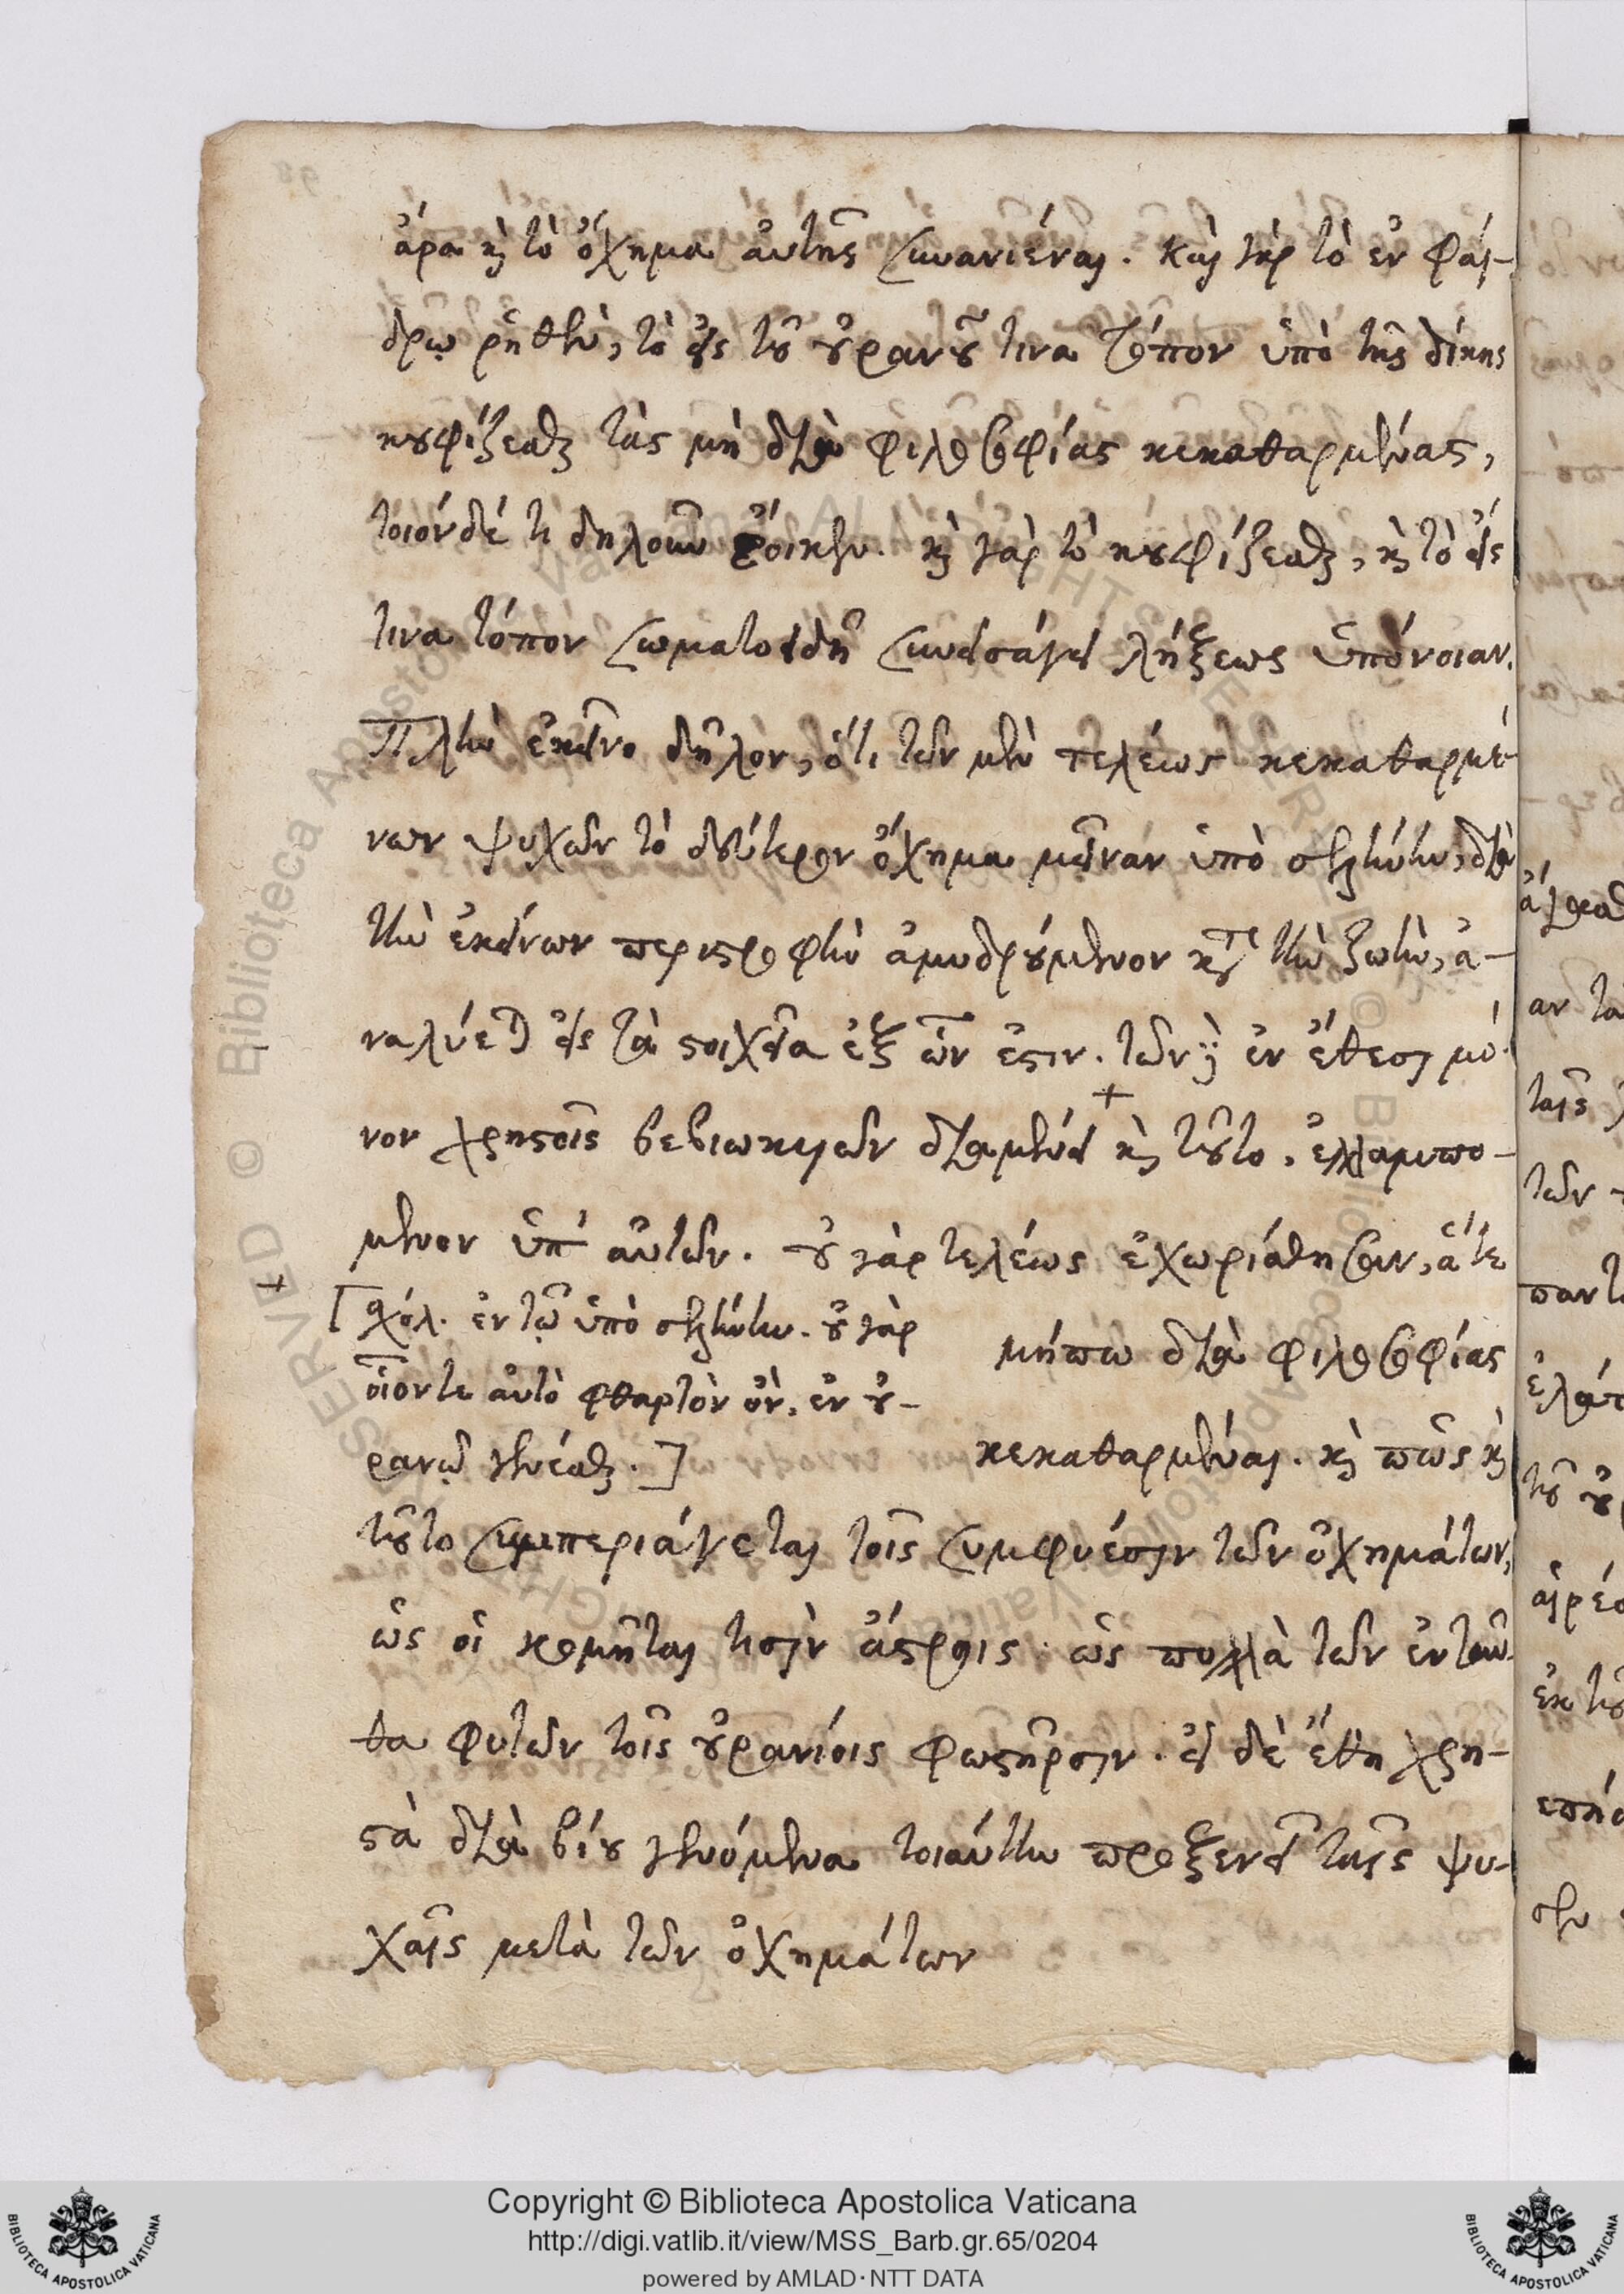 ἄρα κ̀ τὸ ὄχημα αὐτῆς συνανιέναι. καὶ γὰρ τὸ ἐν φαί-
δρῳ ῥηθὲν, τὸ εἰς τοῦ οὐρανοῦ τινα τόπον ὑπὸ τῆς δίκης
κουφίζεσθαι τὰς μὴ διὰ φιλοσοφίας κεκαθαρμένας,
τοιόνδέ τι δηλοῦν ἔοικεν. κ̀ γὰρ τὸ κουφίζεσθαι, κ̀ τὸ εἴς
τινα τόπον σωματοειδῆ συνεισάγει λήξεως ὑπόνοιαν.
Πλὴν ἐκεῖνο δῆλον, ὅτι τῶν μὲν τελέως κεκαθαρμέ-
νων ψυχῶν τὸ δεύτερον ὄχημα μεῖναν ὑπὸ σελήνην, διὰ
τὴν ἐκείνων περιστροφὴν ἀμυδρούμενον κατὰ τὴν ζωὴν, ἀ-
ναλύεται εἰς τὰ στοιχεῖα ἐξ ὧν ἐστιν. τῶν δὲ ἐν ἔθεσι μό-
νον χρηστοῖς βεβιωκυιῶν διαμένει κ̀ τοῦτο, ἐλλαμπό-
μενον ὑπ' αὐτῶν. οὐ γὰρ τελέως ἐχωρίσθησαν, ἅτε
[σχόλ. ἐν τῷ ὑπὸ σελήνην. οὐ γὰρ
οἷον τε αὐτὸ φθαρτὸν ὂν, ἐν οὐ-
ρανῷ γενέσθαι.]
μήπω διὰ φιλοσοφίας
κεκαθαρμέναι. κ̀ πῶς κ̀
τοῦτο συμπεριάγεται τοῖς συμφυέσιν τῶν ὀχημάτων,
ὡς οἱ κομῆται τισὶν ἄστροις. ὡς πολλὰ τῶν ἐνταῦ-
θα φυτῶν τοῖς οὐρανίοις φωστῆρσιν. εἰ δὲ ἔθη χρη-
στὰ διὰ βίου γενόμενα τοιαύτην προξενεῖ ταῖς ψυ-
χαῖς μετὰ τῶν ὀχημάτων
Copyright © Biblioteca Apostolica Vaticana
http://digi.vatlib.it/view/MSS_Barb.gr.65/0204
powered by AMLAD·NTT DATA